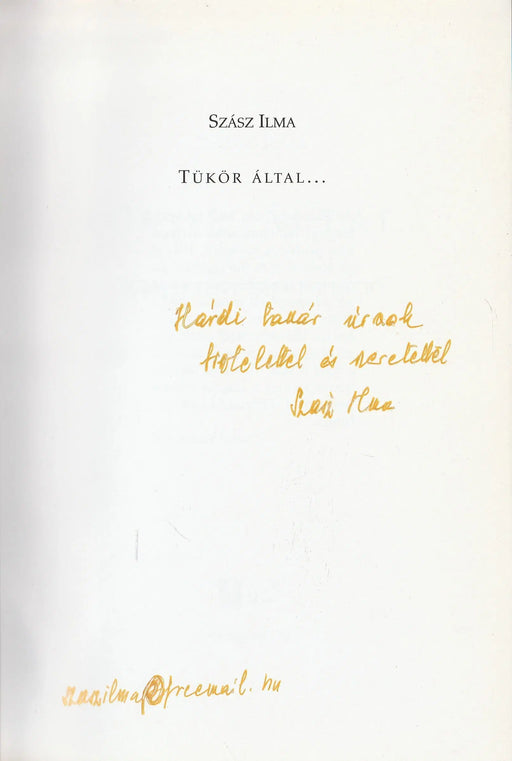 SZÁSZ ILMA
TÜKÖR ÁLTAL...
Hárdi tanár úrnak
tisztelettel és szeretettel
Szász Ilma
szaszilma@freemail.hu